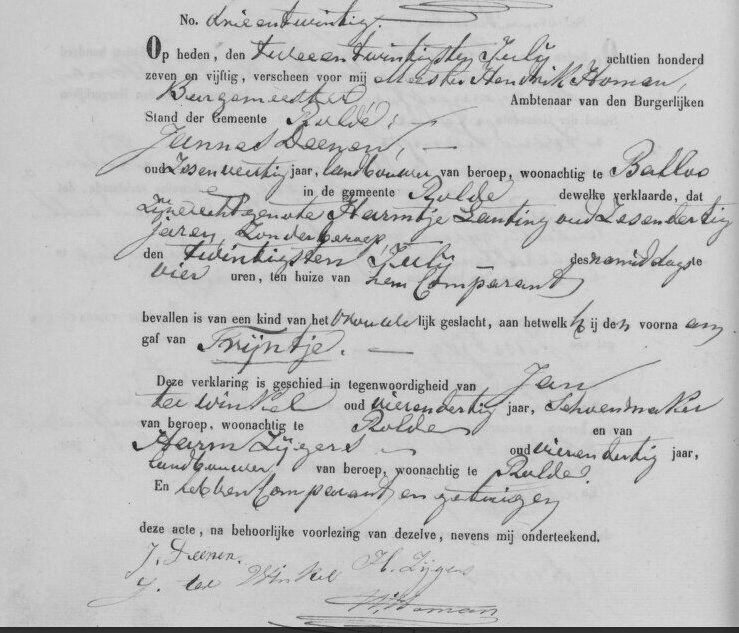 No. drieentwintig.
Op heden, den tweeentwintigsten July achttien honderd
zeven en vijftig, verscheen voor mij Meester Hendrik Homan,
Burgemeester Ambtenaar van den Burgerlijken
Stand der Gemeente Rolde,
Jannes Deenen,
oud zesenveertig jaar, landbouwer van beroep, woonachtig te Balloo
in de gemeente Rolde dewelke verklaarde, dat
zijne echtgenote Harmtje Lanting oud zesendertig
jaren zonder beroep,
den twintigsten July des namiddags te
vier uren, ten huize van hem Comparant
bevallen is van een kind van het vrouwelijk geslacht, aan hetwelk hij den voornaam
gaf van Trijntje.
Deze verklaring is geschied in tegenwoordigheid van Jan
ter Winkel oud vierendertig jaar, Schoenmaker
van beroep, woonachtig te Rolde en van
Harm Zijgers oud vierendertig jaar,
landbouwer van beroep, woonachtig te Rolde.
En hebben Comparant en getuigen
deze acte, na behoorlijke voorlezing van dezelve, nevens mij onderteekend.
J. Deenen.
J. ter Winkel H. Zijgers
H. Homan